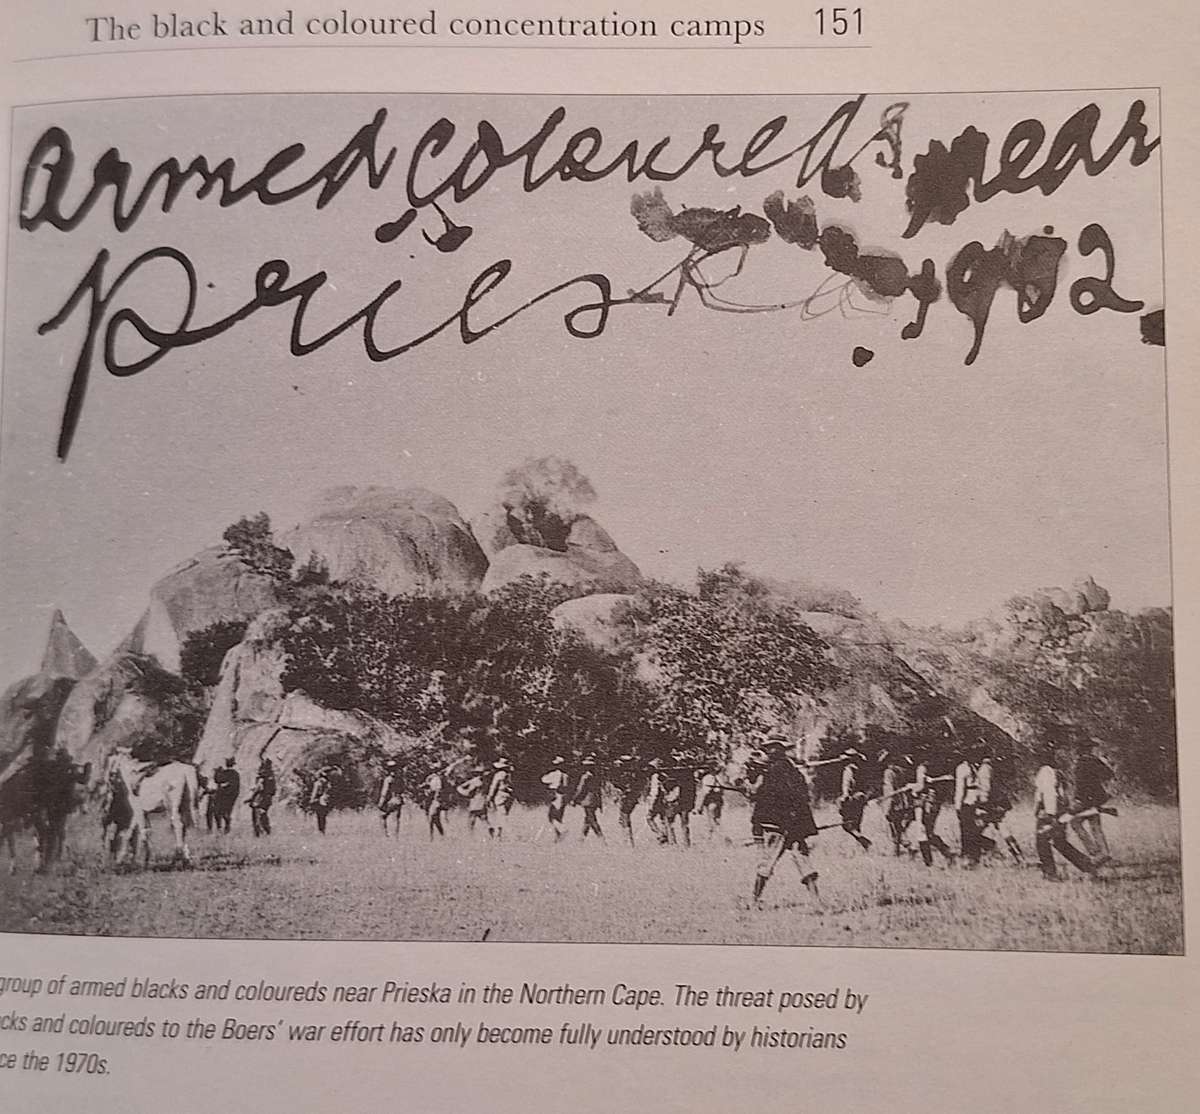 The black and coloured concentration camps 151
armed coloureds near
prieska 1902.
group of armed blacks and coloureds near Prieska in the Northern Cape. The threat posed by
cks and coloureds to the Boers' war effort has only become fully understood by historians
ce the 1970s.